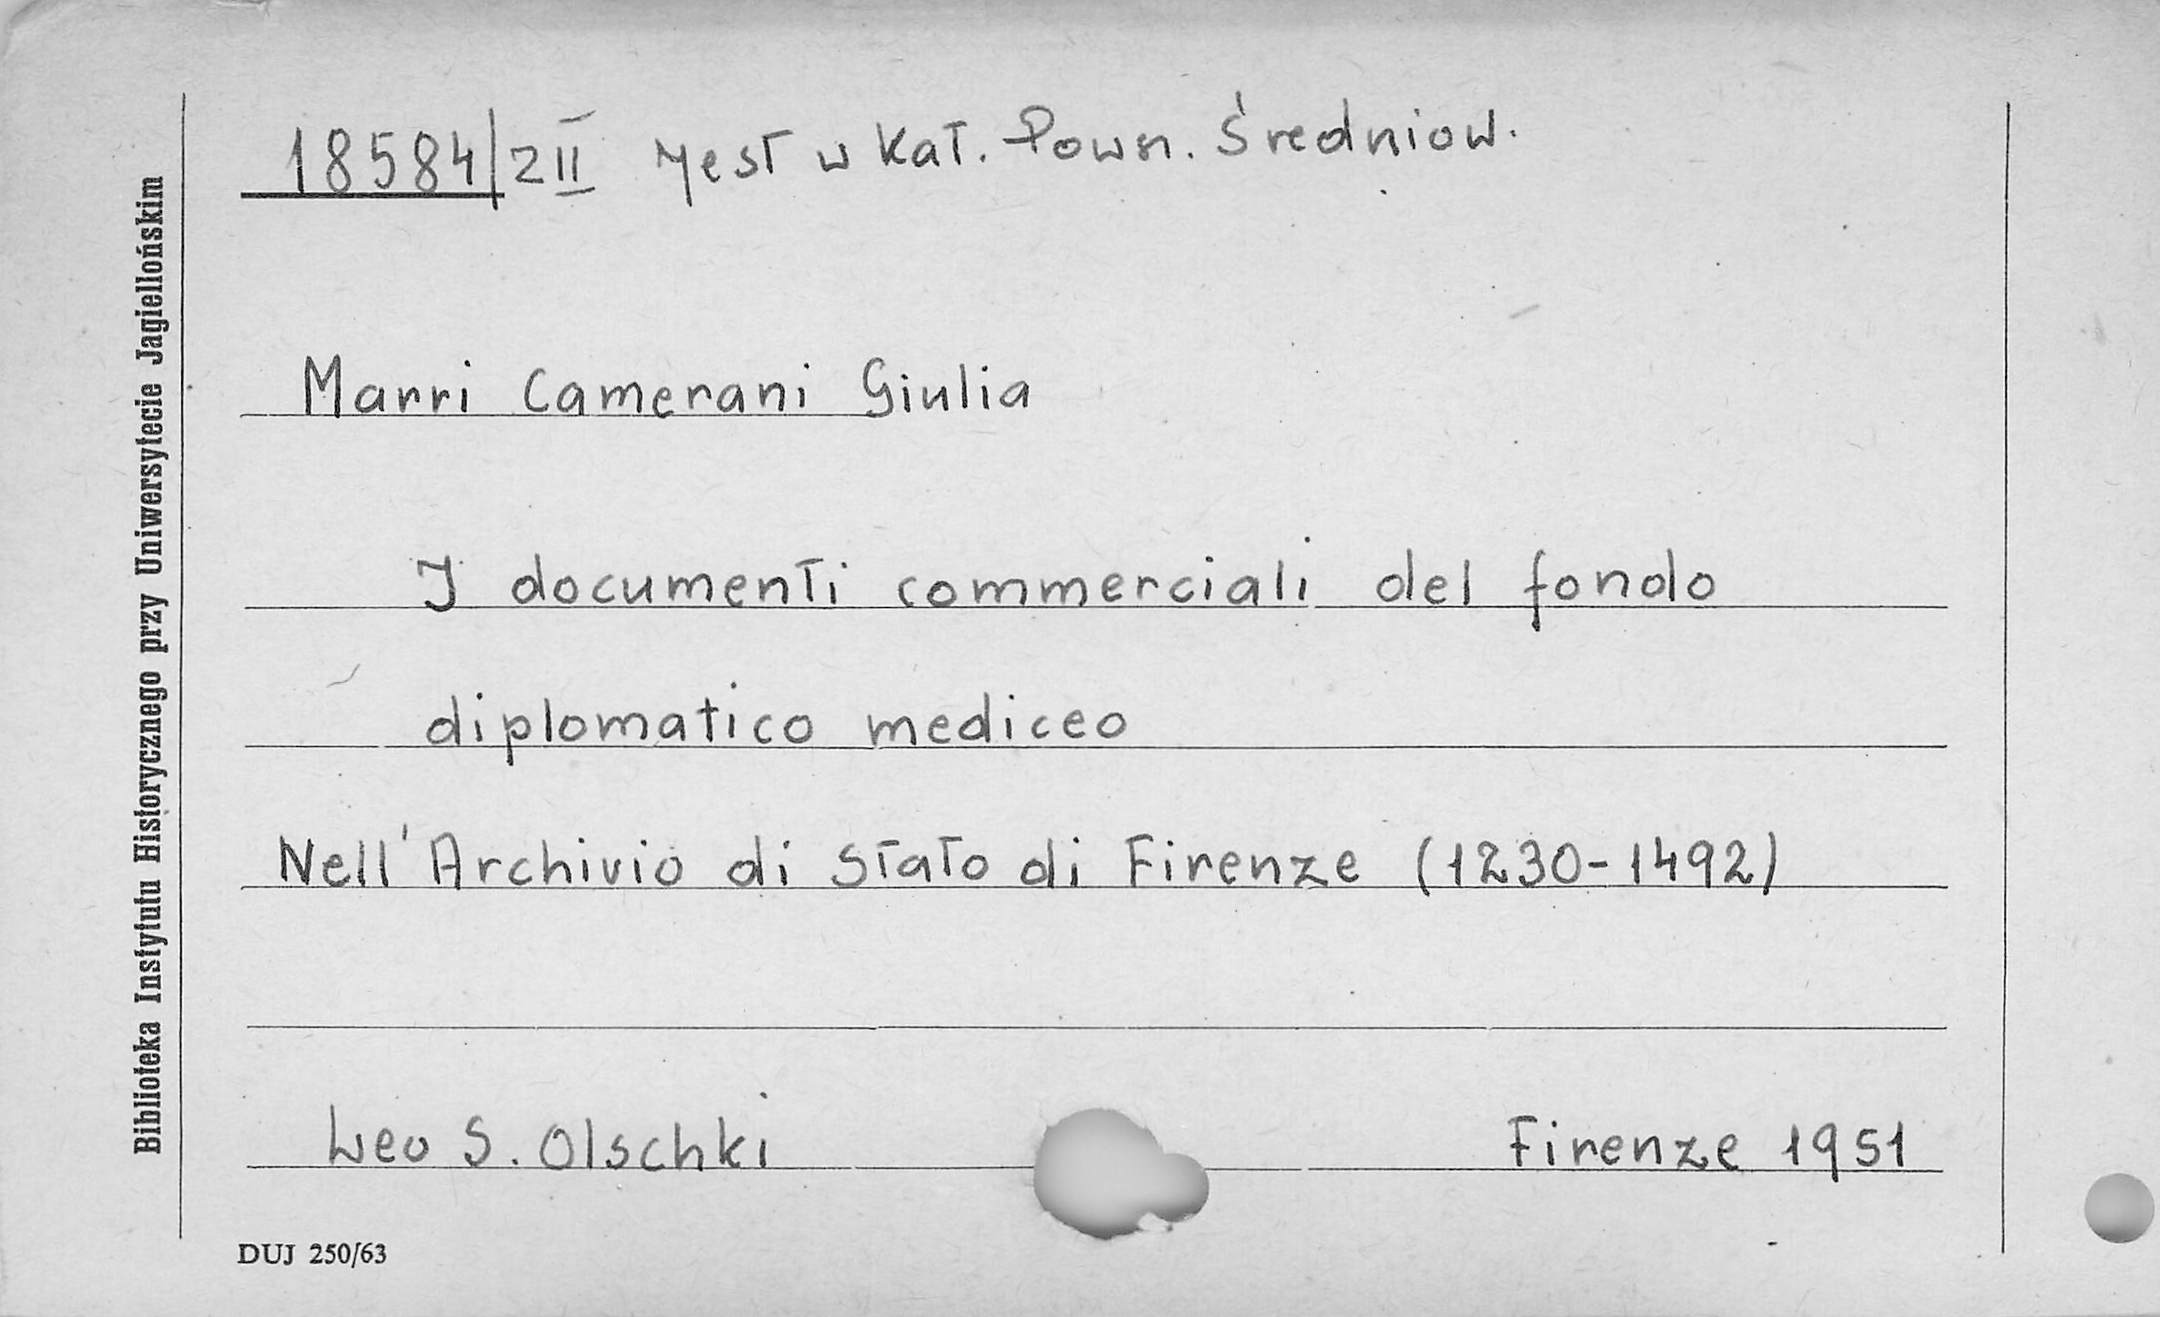 18584/2 II Jest w Kat. Pows. Średniow.
Marri Camerani Giulia
I documenti commerciali del fondo
diplomatico mediceo
Nell'Archivio di Stato di Firenze (1230-1492)
Leo S. Olschki Firenze 1951
DUJ 250/63
Biblioteka Instytutu Historycznego przy Uniwersytecie Jagiellońskim